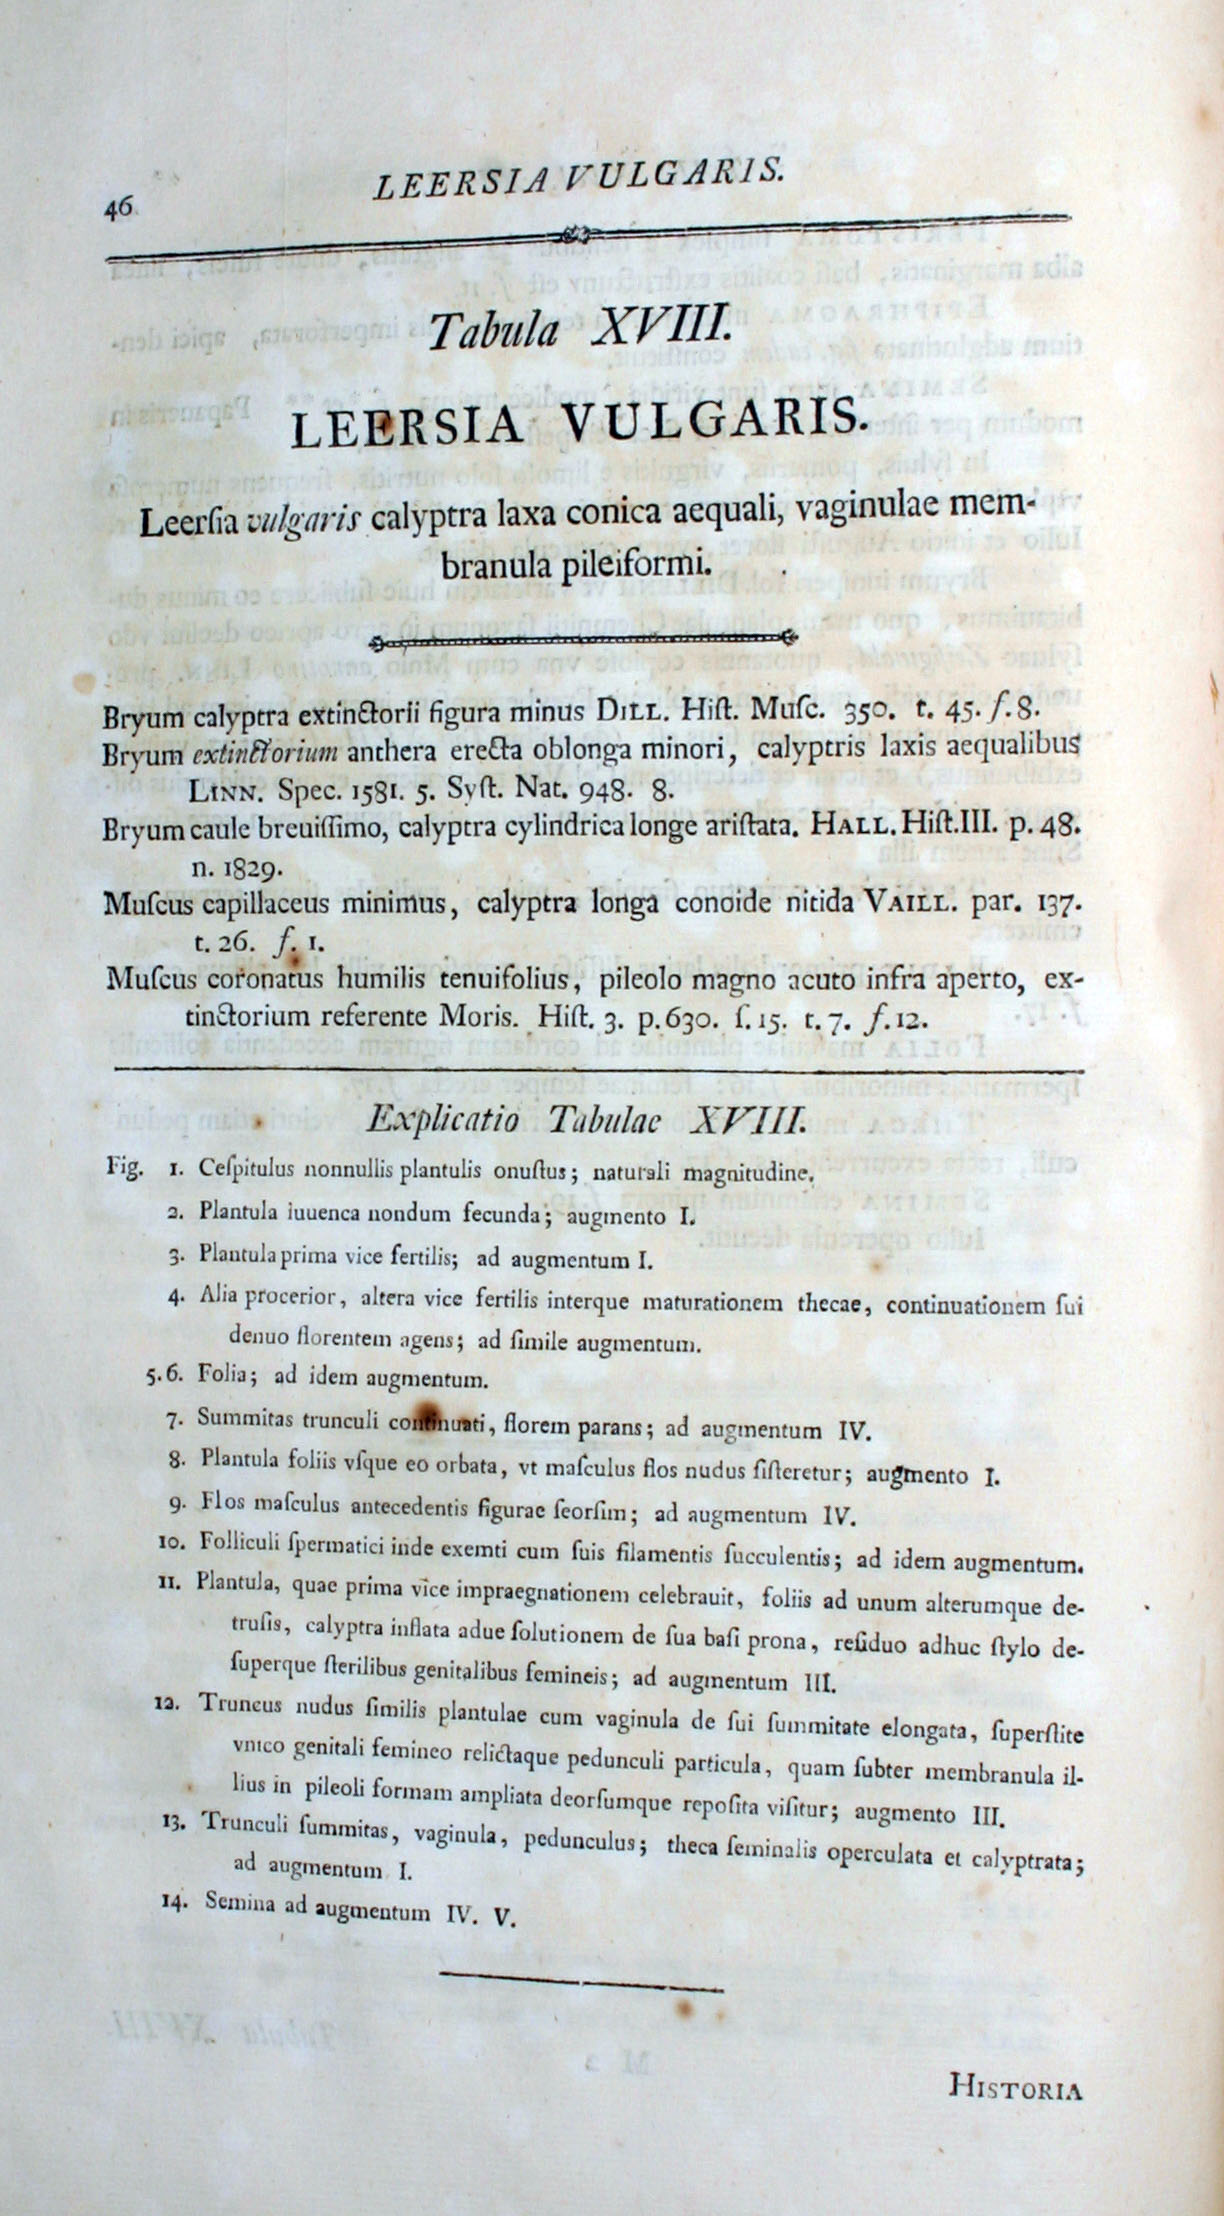 46
LEERSIA VULGARIS.
Tabula XVIII.
LEERSIA VULGARIS.
Leerſia vulgaris calyptra laxa conica aequali, vaginulae mem-
branula pileiformi.
Bryum calyptra extinctorii figura minus DILL. Hiſt. Muſc. 350. t. 45. f. 8.
Bryum extinctorium anthera erecta oblonga minori, calyptris laxis aequalibus
LINN. Spec. 1581. 5. Syſt. Nat. 948. 8.
Bryum caule breuiſſimo, calyptra cylindrica longe ariſtata. HALL. Hiſt. III. p. 48.
n. 1829.
Muſcus capillaceus minimus, calyptra longa conoide nitida VAILL. par. 137.
t. 26. f. 1.
Muſcus coronatus humilis tenuifolius, pileolo magno acuto infra aperto, ex-
tinctorium referente Moris. Hiſt. 3. p. 630. ſ. 15. t. 7. f. 12.
Explicatio Tabulae XVIII.
Fig. 1. Ceſpitulus nonnullis plantulis onuſtus; naturali magnitudine.
2. Plantula iuuenca nondum fecunda; augmento I.
3. Plantula prima vice fertilis; ad augmentum I.
4. Alia procerior, altera vice fertilis interque maturationem thecae, continuationem ſui
denuo florentem agens; ad ſimile augmentum.
5. 6. Folia; ad idem augmentum.
7. Summitas trunculi continuati, florem parans; ad augmentum IV.
8. Plantula foliis vſque eo orbata, vt maſculus flos nudus ſiſteretur; augmento I.
9. Flos maſculus antecedentis figurae ſeorſim; ad augmentum IV.
10. Folliculi ſpermatici inde exemti cum ſuis filamentis ſucculentis; ad idem augmentum.
11. Plantula, quae prima vice impraegnationem celebrauit, foliis ad unum alterumque de-
truſis, calyptra inflata adue ſolutionem de ſua baſi prona, reſiduo adhuc ſtylo de-
ſuperque ſterilibus genitalibus femineis; ad augmentum III.
12. Truncus nudus ſimilis plantulae cum vaginula de ſui ſummitate elongata, ſuperſtite
vnico genitali femineo relictaque pedunculi particula, quam ſubter membranula il-
lius in pileoli formam ampliata deorſumque repoſita viſitur; augmento III.
13. Trunculi ſummitas, vaginula, pedunculus; theca ſeminalis operculata et calyptrata;
ad augmentum I.
14. Semina ad augmentum IV. V.
HISTORIA